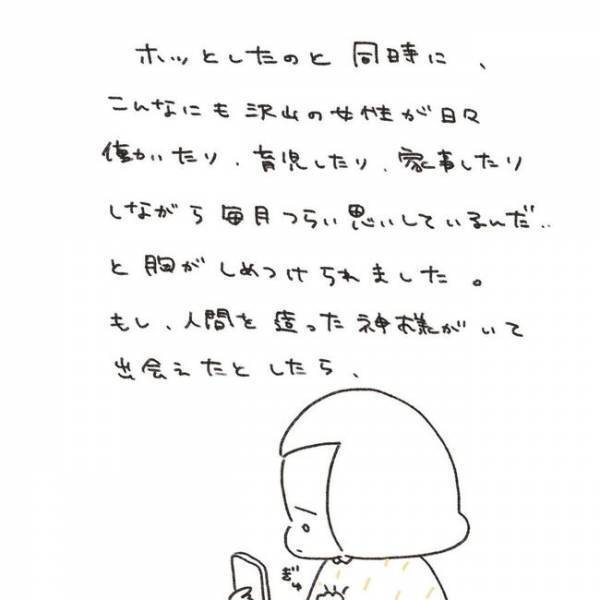 ホッとしたのと同時に、
こんなにも沢山の女性が日々
働いたり、育児したり、家事したり
しながら毎月つらい思いしているんだ‥
と胸がしめつけられました。
もし、人間を造った神様がいて
出会えたとしたら、
ぎゅ